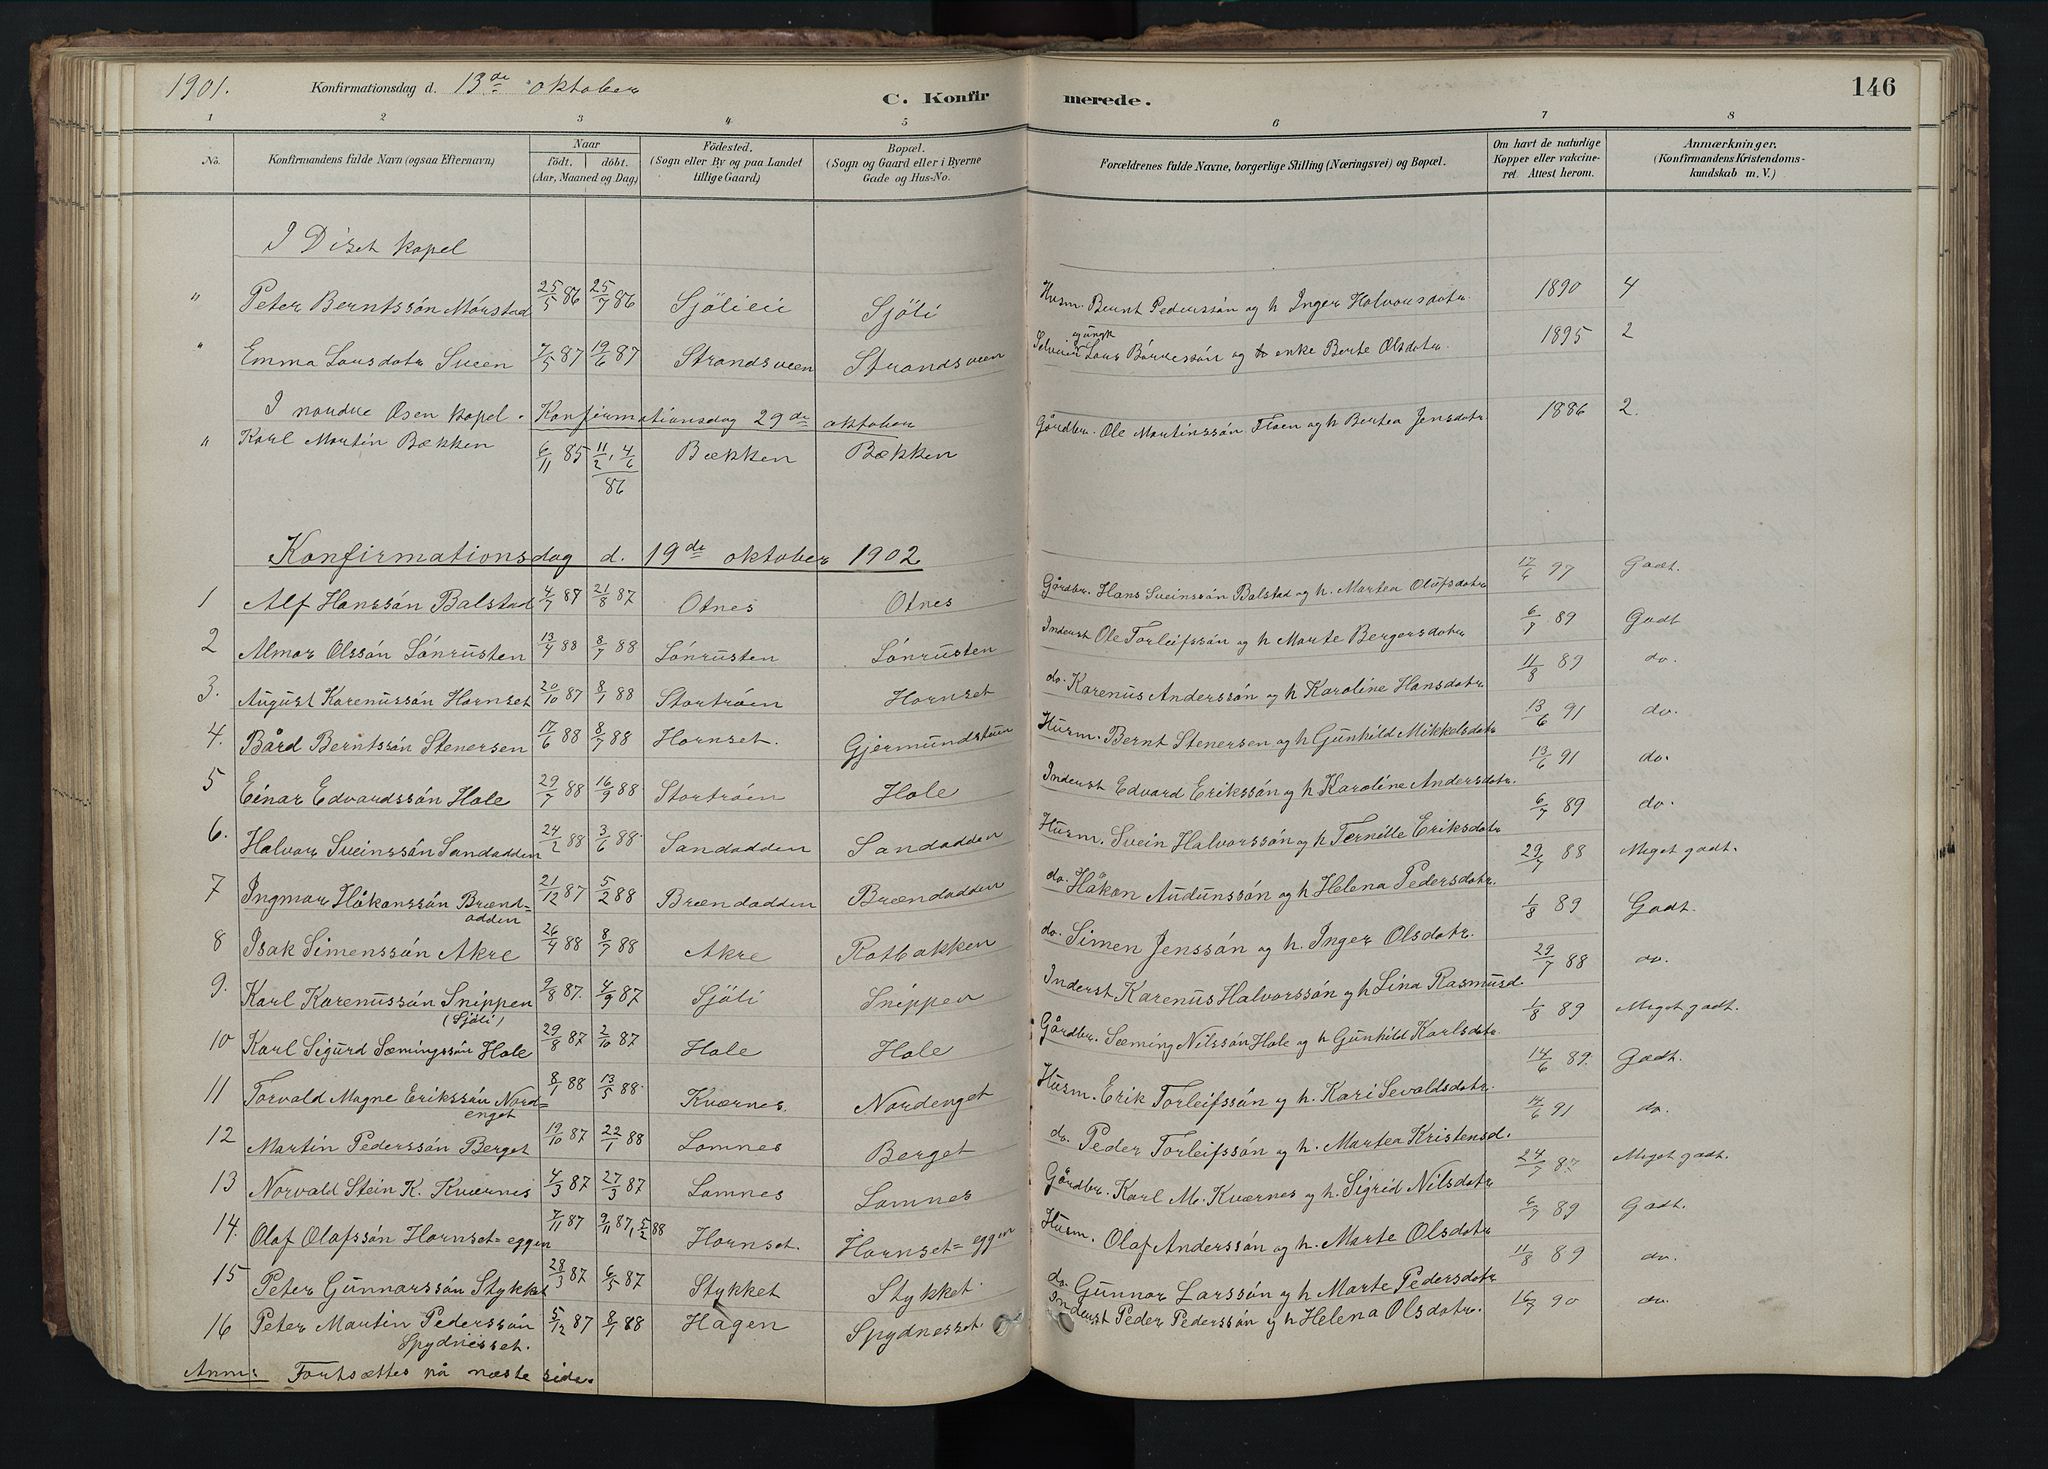 1901. Konfirmationsdag d. 13de oktober C. Konfirmerede. 146
1 2 3 4 5 6 7 8
No. Konfirmandens fulde Navn (ogsaa Efternavn) Naar födt. döbt. (Aar, Maaned og Dag) Födested. (Sogn eller By og paa Landet tillige Gaard) Bopæl. (Sogn og Gaard eller i Byerne Gade og Hus-No. Forældrenes fulde Navne, borgerlige Stilling (Næringsvei) og Bopæl. Om havt de naturlige Kopper eller vakcineret. Attest herom. Anmærkninger. (Konfirmandens Kristendomskundskab m. V.)
I Diset kapel
" Peter Berntssön Mörstad 25/5 86 25/7 86 Sjöli Husm. Bernt Pederssön og h Inger Halvorsdatr. 1890 4
" Emma Larsdatr Sveen 7/5 87 19/6 87 Strandsveen Strandsveen Lars Bördessön og enke Berte Olsdatr. 1895 2
I nordre Osen kapel. Konfirmationsdag 29de oktober
" Karl Martin Bækken 6/11 85 11/2, 4/6 86 Bækken Bækken Gårdbr. Ole Martinssön Floen og h Bertea Jensdatr. 1886 2.
Konfirmationsdag d. 19de oktober 1902
1 Alf Hanssön Balstad 4/7 87 21/8 87 Otnes Otnes Gårdbr. Hans Sveinssön Balstad og h. Martea Olufsdatr 17/6 97 Godt.
2 Almar Olssön Lönrusten 13/4 88 8/7 88 Lönrusten Lönrusten Inderst Ole Torleifssön og h Marte Bergersdatr 6/7 89 Godt
3. August Karenussön Hornset 20/10 87 8/1 88 Stortröen Hornset do. Karenus Anderssön og h Karoline Hansdatr 11/8 89 do.
4. Bård Berntssön Stenersen 17/6 88 8/7 88 Hornset. Gjermundstuen Husm. Bernt Stenersen og h Gunhild Mikkelsdatr 13/6 91 do.
5 Einar Edvardssön Hole 29/7 88 16/9 88 Stortröen Hole Inderst Edvard Erikssön og h Karoline Andersdatr. 13/6 91 do.
6. Halvor Sveinssön Sandodden 24/2 88 3/6 88 Sandodden Sandodden Husm. Svein Halvorssön og h Ternille Eriksdatr 6/7 89 do.
7 Ingmar Håkonssön Brændodden 21/12 87 5/2 88 Brændodden Brændodden do. Håkon Audunssön og h Helena Pedersdatr. 29/7 88 Meget godt.
8 Isak Simenssön Akre 26/4 88 8/7 88 Akre Rotbakken do. Simen Jenssön og h. Inger Olsdatr. 1/8 89 Godt.
9. Karl Karenussön Snippen (Sjöli) 9/8 87. 4/9 87 Sjöli Snippen Inderst Karenus Halvorssön og h Lina Rasmusd. 29/7 88 do.
10 Karl Sigurd Sæmingssön Hole 29/8 87 2/10 87 Hole Hole Gårdbr. Sæming Nilssön Hole og h Gunhild Karlsdatr 1/8 89 Meget godt.
11 Torvald Magne Erikssön Nordenget 8/1 88 13/5 88 Kværnes. Nordenget Husm. Erik Torleifssön og h. Kari Sevaldsdatr. 14/6 89. Godt.
12 Martin Pederssön Berget 19/10 87 22/1 88 Lomnes Berget do. Peder Torleifssön og h. Martea Kristensd. 14/6 91 do.
13 Norvald Stein K. Kværnes 4/3 87 27/3 87 Lomnes Lomnes Gårdbr. Karl M. Kværnes og h. Sigrid Nilsdatr 24/7 87 Meget godt.
14. Olaf Olafssön Hornset=eggen 7/11 87 9/11 87, 5/2 88 Hornset. Hornset=eggen Husm. Olaf Anderssön og h. Marte Olsdatr 6/7 89 Godt.
15 Peter Gunnarssön Stykket 28/3 87 6/5 87 Stykket Stykket do. Gunnar Larssön og h Marte Pedersdatr 11/8 89 do.
16 Peter Martin Pederssön Spydnesset. 5/12 87 8/1 88 Hagen Spydnesset. Inderst Peder Pederssön og h Helena Olsdatr. 16/7 90 do.
Anm: Fortsættes på næste side.